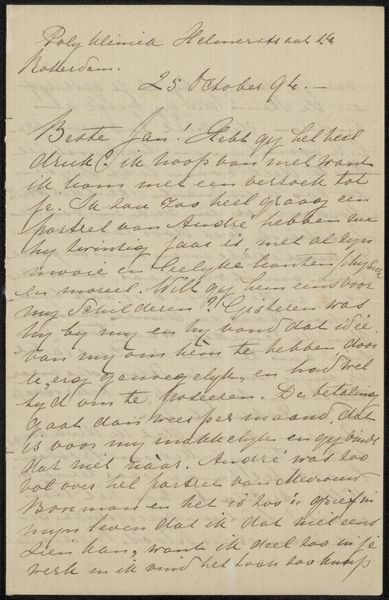 Polykliniek Helmerstraat
Rotterdam.
25 October 94. —
Beste Jan! Hebt gy het heel
druk? ik hoop van niet want
ik kom met een verzoek tot
je. Ik zou zoo heel graag een
portret van André hebben nu
hy twintig jaar is, met al zyn
mooie en leelyke kanten, physiek
en moreel. Wilt gy hem eens voor
my schilderen? Gisteren was
hy by my en hy vond dat idée
van my om hem te hebben door
u, erg genoegelyk, en had wel
tyd om te poseeren. De betaling
gaat dan weer per maand, dat
is voor my makkelyk en gy vindt
dat niet naar. André was zoo
vol over het portret van Mevrouw
Bosman en het is zoo'n grief in
myn leven dat ik dat niet eens
zien kan, want ik deel zoo in je
werk en ik vind het toch zoo knap